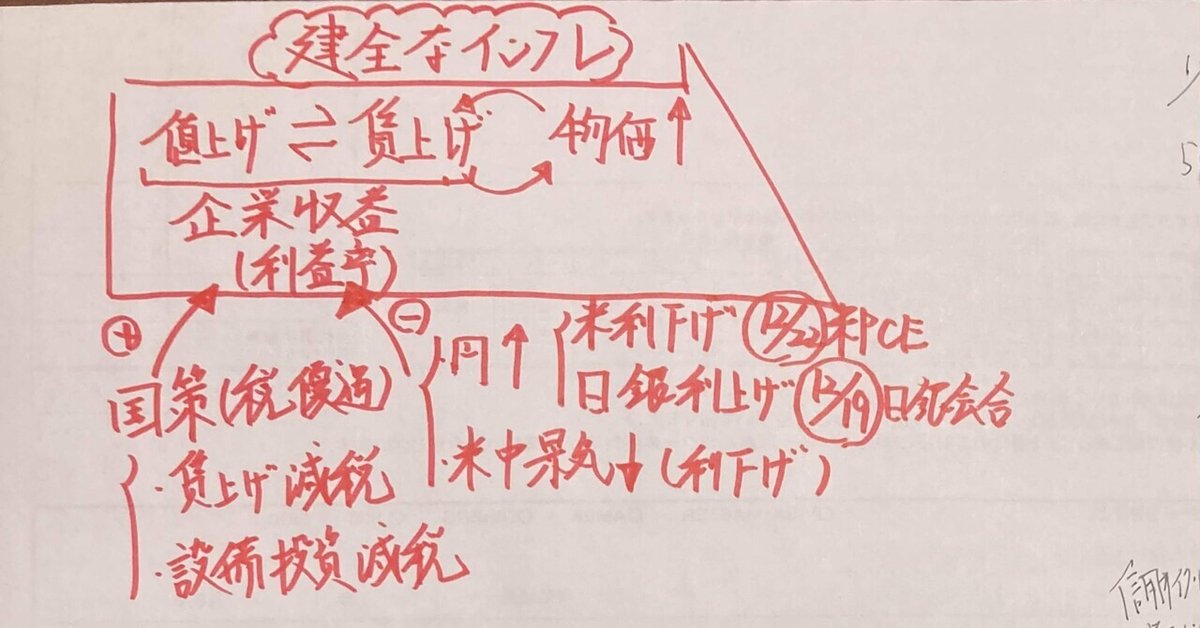 建全なインフレ
値上げ ⇌ 賃上げ 物価↑
企業収益
(利益率)
⊕ ⊖
・円↑ 米利下げ 12/22 米PCE
日銀利上げ 12/19 日銀会合
国策(税優遇)
・米中景気↓(利下げ)
・賃上げ減税
・設備投資減税